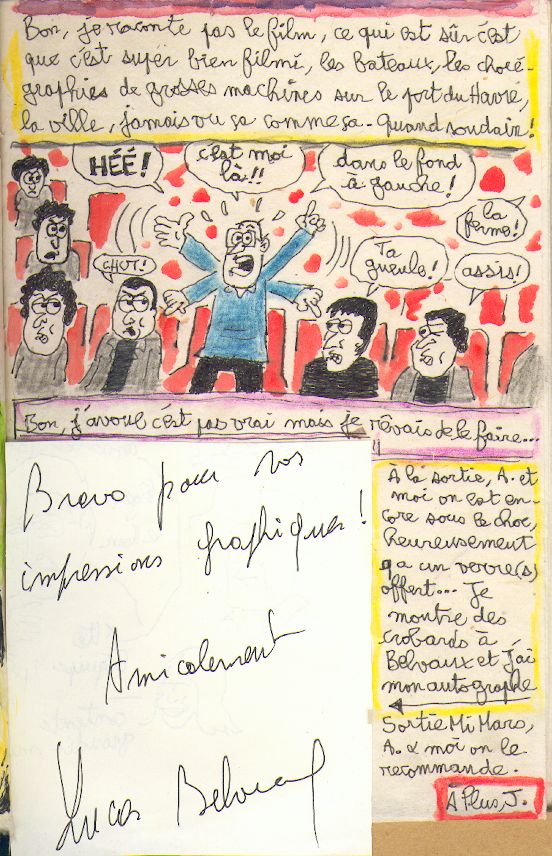 Bon, je raconte pas le film, ce qui est sûr c'est
que c'est super bien filmé, les bateaux, les choré-
graphies de grosses machines sur le port du Havre,
la ville, jamais vu ça comme ça. Quand soudain!
HÉÉ!
c'est moi
là!!
dans le fond
à gauche!
la
ferme!
CHUT!
Ta
gueule!
assis!
Bon, j'avoue c'est pas vrai mais je rêvais de le faire...
Bravo pour vos
impressions graphiques!
Amicalement
Lucas Belvaux
À la sortie, A. et
moi on est en-
core sous le choc,
heureusement
y a un verre(s)
offert... Je
montre des
crobards à
Belvaux et j'ai
mon autographe
Sortie Mi Mars,
A. & moi on le
recommande.
À Plus, J.